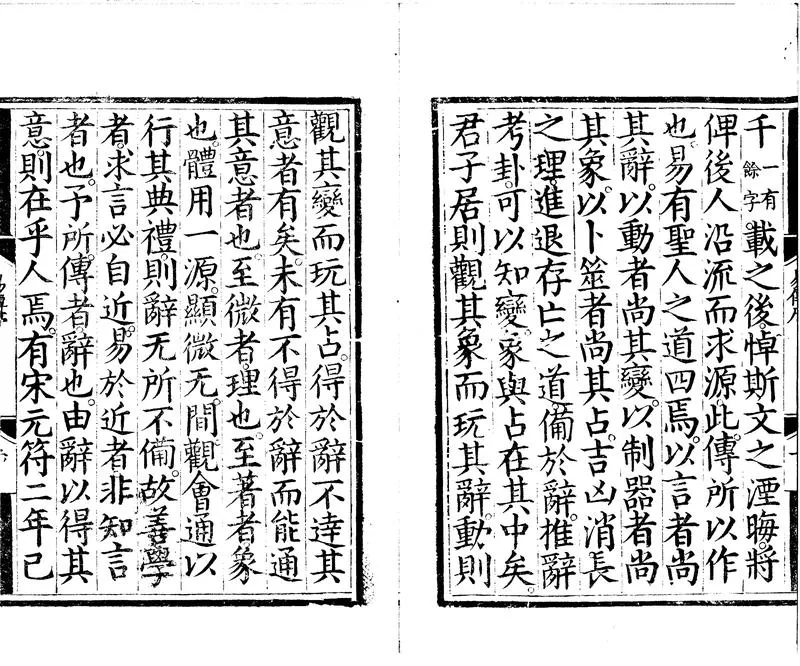 千一有餘字載之後。悼斯文之湮晦。將
俾後人沿流而求源。此傳所以作
也。易有聖人之道四焉。以言者尚
其辭。以動者尚其變。以制器者尚
其象。以卜筮者尚其占。吉凶消長
之理。進退存亡之道。備於辭。推辭
考卦。可以知變。象與占在其中矣。
君子居則觀其象而玩其辭。動則
觀其變而玩其占。得於辭不達其
意者有矣。未有不得於辭而能通
其意者也。至微者。理也。至著者象
也。體用一源。顯微无間。觀會通以
行其典禮。則辭无所不備。故善學
者。求言必自近。易於近者。非知言
者也。予所傳者。辭也。由辭以得其
意。則在乎人焉。有宋元符二年己